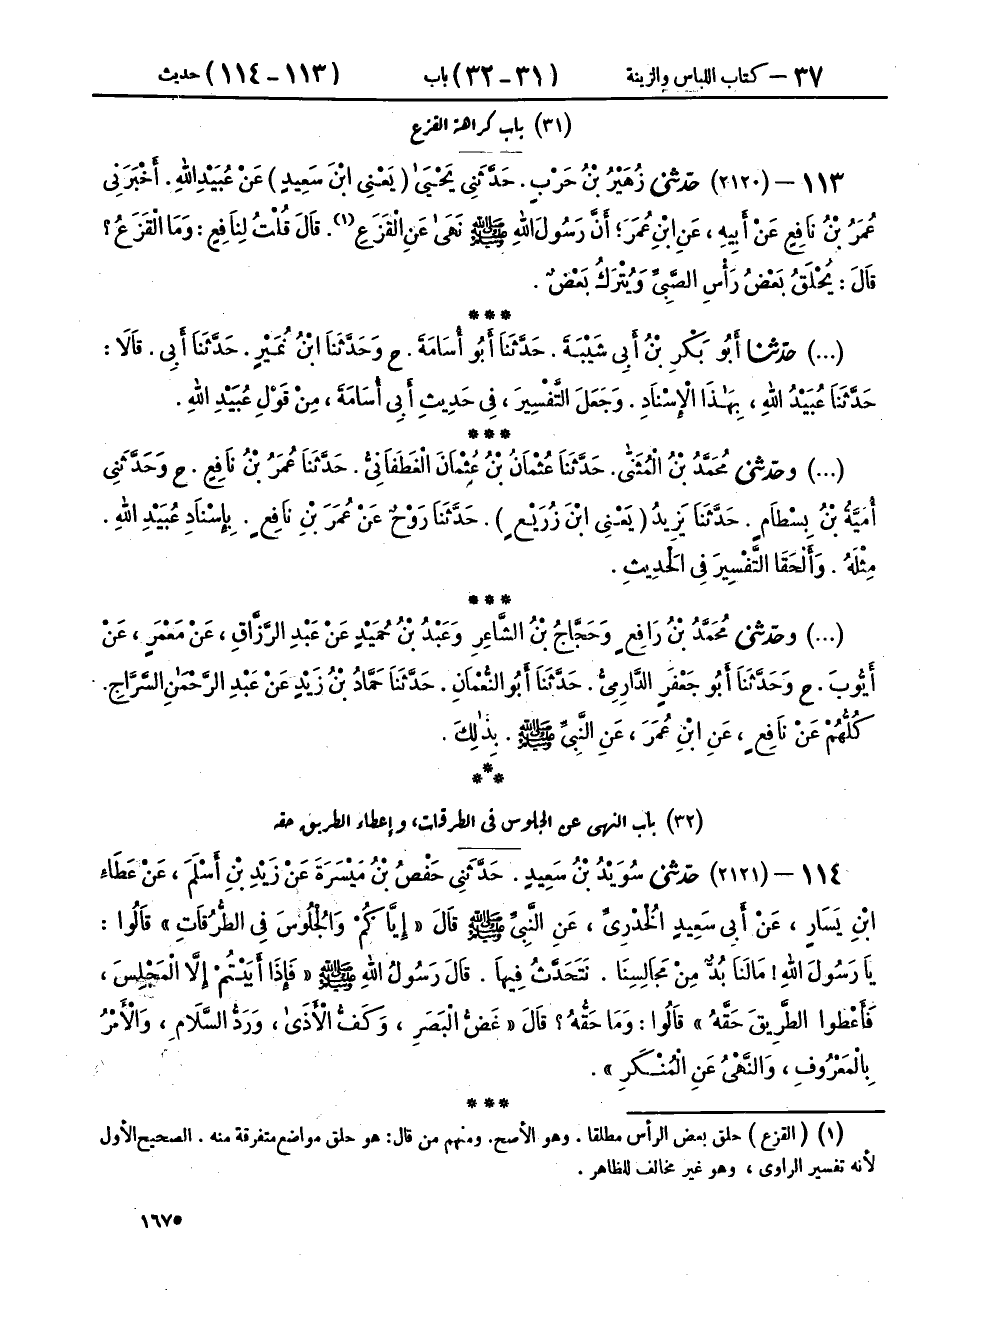 ٣٧ – كتاب اللباس والزينة (٣١-٣٢) باب (١١٣-١١٤) حديث
(٣١) باب كراهة القزع
١١٣ – (٢١٢٠) حَدَّثَنِي زُهَيْرُ بْنُ حَرْبٍ. حَدَّثَنِي يَحْيَىٰ (يَعْنِي ابْنَ سَعِيدٍ) عَنْ عُبَيْدِ اللهِ. أَخْبَرَنِي
عُمَرُ بْنُ نَافِعٍ عَنْ أَبِيهِ، عَنِ ابْنِ عُمَرَ؛ أَنَّ رَسُولَ اللهِ ﷺ نَهَىٰ عَنِ الْقَزَعِ (١). قَالَ قُلْتُ لِنَافِعٍ: وَمَا الْقَزَعُ؟
قَالَ: يُحْلَقُ بَعْضُ رَأْسِ الصَّبِيِّ وَيُتْرَكُ بَعْضٌ.
***
(...) حَدَّثَنَا أَبُو بَكْرِ بْنُ أَبِي شَيْبَةَ. حَدَّثَنَا أَبُو أُسَامَةَ. ح وَحَدَّثَنَا ابْنُ نُمَيْرٍ. حَدَّثَنَا أَبِي. قَالَا:
حَدَّثَنَا عُبَيْدُ اللهِ، بِهَـٰذَا الْإِسْنَادِ. وَجَعَلَ التَّفْسِيرَ، فِي حَدِيثِ أَبِي أُسَامَةَ، مِنْ قَوْلِ عُبَيْدِ اللهِ.
***
(...) وحَدَّثَنِي مُحَمَّدُ بْنُ الْمُثَنَّىٰ. حَدَّثَنَا عُثْمَانُ بْنُ عُثْمَانَ الْغَطَفَانِيُّ. حَدَّثَنَا عُمَرُ بْنُ نَافِعٍ. ح وَحَدَّثَنِي
أُمَيَّةُ بْنُ بِسْطَامٍ. حَدَّثَنَا يَزِيدُ (يَعْنِي ابْنَ زُرَيْعٍ). حَدَّثَنَا رَوْحٌ عَنْ عُمَرَ بْنِ نَافِعٍ. بِإِسْنَادِ عُبَيْدِ اللهِ.
مِثْلَهُ. وَأَلْحَقَا التَّفْسِيرَ فِي الْحَدِيثِ.
***
(...) وحَدَّثَنِي مُحَمَّدُ بْنُ رَافِعٍ وَحَجَّاجُ بْنُ الشَّاعِرِ وَعَبْدُ بْنُ حُمَيْدٍ عَنْ عَبْدِ الرَّزَّاقِ، عَنْ مَعْمَرٍ، عَنْ
أَيُّوبَ. ح وَحَدَّثَنَا أَبُو جَعْفَرٍ الدَّارِمِيُّ. حَدَّثَنَا أَبُو النُّعْمَانِ. حَدَّثَنَا حَمَّادُ بْنُ زَيْدٍ عَنْ عَبْدِ الرَّحْمَـٰنِ السَّرَّاجِ.
كُلُّهُمْ عَنْ نَافِعٍ، عَنِ ابْنِ عُمَرَ، عَنِ النَّبِيِّ ﷺ. بِذَٰلِكَ.
***
(٣٢) باب النهى عن الجلوس فى الطرقات، وإعطاء الطريق حقه
١١٤ – (٢١٢١) حَدَّثَنِي سُوَيْدُ بْنُ سَعِيدٍ. حَدَّثَنِي حَفْصُ بْنُ مَيْسَرَةَ عَنْ زَيْدِ بْنِ أَسْلَمَ، عَنْ عَطَاءِ
ابْنِ يَسَارٍ، عَنْ أَبِي سَعِيدٍ الْخُدْرِيِّ، عَنِ النَّبِيِّ ﷺ قَالَ «إِيَّاكُمْ وَالْجُلُوسَ فِي الطُّرُقَاتِ» قَالُوا:
يَا رَسُولَ اللهِ! مَا لَنَا بُدٌّ مِنْ مَجَالِسِنَا. نَتَحَدَّثُ فِيهَا. قَالَ رَسُولُ اللهِ ﷺ «فَإِذَا أَبَيْتُمْ إِلَّا الْمَجْلِسَ،
فَأَعْطُوا الطَّرِيقَ حَقَّهُ» قَالُوا: وَمَا حَقُّهُ؟ قَالَ «غَضُّ الْبَصَرِ، وَكَفُّ الْأَذَىٰ، وَرَدُّ السَّلَامِ، وَالْأَمْرُ
بِالْمَعْرُوفِ، وَالنَّهْيُ عَنِ الْمُنْكَرِ».
***
(١) (القزع) حلق بعض الرأس مطلقا. وهو الأصح. ومنهم من قال: هو حلق مواضع متفرقة منه. الصحيح الأول
لأنه تفسير الراوى، وهو غير مخالف للظاهر.
١٦٧٥